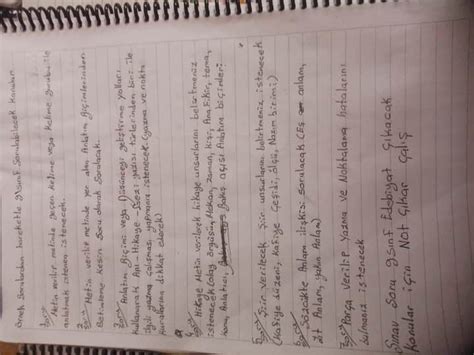 Örnek sorulardan hareketle 9.sınıf Sorulabilecek Konuları
1. Soru: Metin verilir metinde geçen kelime veya kelime grubu ile
anlatılmak istenen istenecek.
2. Soru: Metin verilir metinde yer alan Anlatım biçimlerinden
Betimleme kesin Soru olarak Sorulacak.
3. Soru: Anlatım biçimi veya Düşünceyi geliştirme yolları
Kullanarak Anı - Hikaye - Gezi yazısı türlerinden biri ile
ilgili yazma çalışması yapmanız istenecek. (yazma ve nokta
kurallarına dikkat ederek)
4. Soru: Hikaye Metin verilerek hikaye unsurlarını belirtmeniz
istenecek (olay örgüsü, Mekan, zaman, kişi, Ana Fikir, tema,
konu, Anlatıcı, Bakış açısı Anlatım biçimleri)
5. Soru: Şiir verilecek Şiir unsurlarını belirtmeniz istenecek
(kafiye düzeni, kafiye Çeşidi, ölçü, Nazım birimi)
6. Soru: Sözcükte Anlam ilişkisi Sorulacak (Eş anlam,
zıt Anlam, yakın Anlam)
7. Soru: Parça Verilip Yazma Ve Noktalama hatalarını
bulmanız istenecek
Sınav Soru 9.Sınıf Edebiyat Çıkacak
Konular için Not Çıkar Çalış